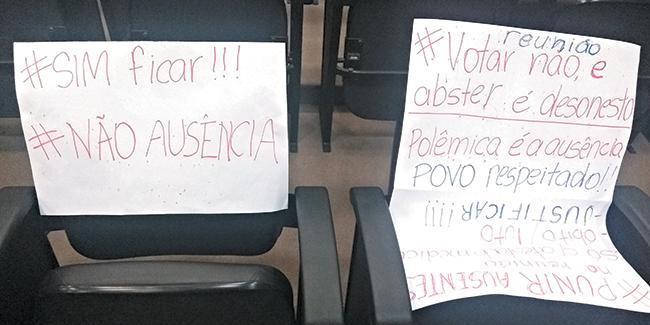 #SIM ficar!!!
#NÃO AUSÊNCIA
reunião
#Votar não, e
abster é desonesto
Polêmica é a ausência
POVO respeitado!!
-JUSTIFICAR!!!!
-óbito/luto
SÓ médico
na reunião
#PUNIR AUSENTES